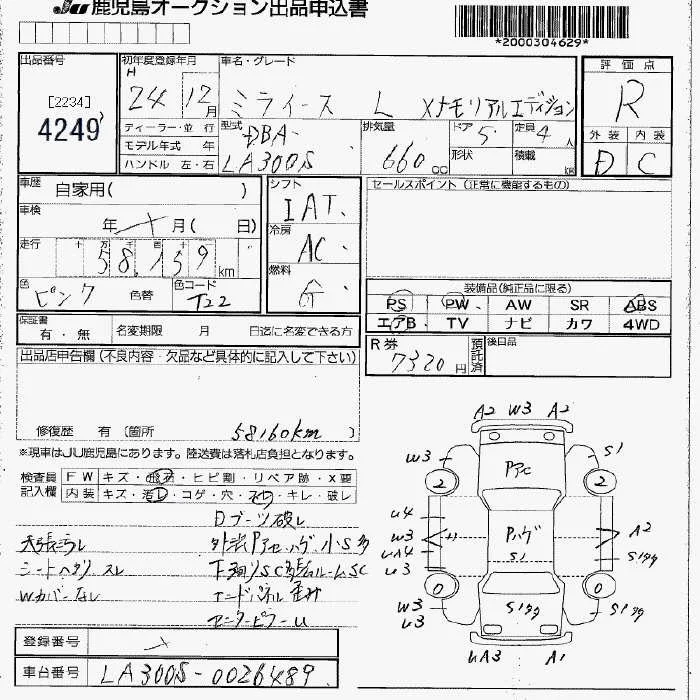 JU 鹿児島オークション出品申込書
*2000304629*
出品番号 初年度登録年月 車名・グレード 評価点
[2234]
4249
H 24 12月
ミライース L メモリアルエディション
R
ディーラー・並行 型式 排気量 ドア 定員 外装 内装
DBA- 660cc 5 4人 D C
モデル年式 年 形状 積載
ハンドル 左・右 LA300S
車歴 自家用( ) シフト セールスポイント (正常に機能するもの)
IAT
車検 年 月( 日) 冷房
AC
走行 十 万 千 百 十 58,159 km 燃料
G
色 ピンク 色替 色コード T22
装備品(純正品に限る)
PS PW AW SR ABS
エアB TV ナビ カワ 4WD
保証書 有・無 名変期限 月 日迄に名変できる方
R券 7320円 預託済 後日品
出品店申告欄 (不良内容・欠品など具体的に記入して下さい)
修復歴 有(箇所 58160km)
※現車はJU鹿児島にあります。陸送費は落札店負担となります。
検査員記入欄 FW キズ・飛石・ヒビ割・リペア跡・X要
内装 キズ・汚レ・コゲ・穴・スレ・キレ・破レ
Dブーツ破レ
天張汚レ
シートヘタリ スレ
Wカバーなし
エンドパネル歪み
センターピラーU
A2 W3 A2
W3 S1
2 アAC 2
U4 Pハゲ A2
W3 S1 Sタク
UA4
U3
0 0
W3 S1タク S1タク
U3
UA3 A1
登録番号
車台番号 LA300S-0026489